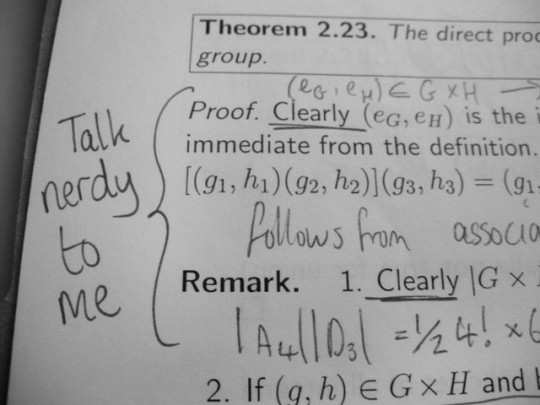 Theorem 2.23. The direct prod
group.
(eG, eH) ∈ G×H →
Proof. Clearly (eG, eH) is the i
immediate from the definition.
[(g1, h1)(g2, h2)](g3, h3) = (g1,
follows from associa
Talk
nerdy
to
me
Remark. 1. Clearly |G ×
|A4||D3| = 1/2 4! × 6
2. If (g, h) ∈ G × H and